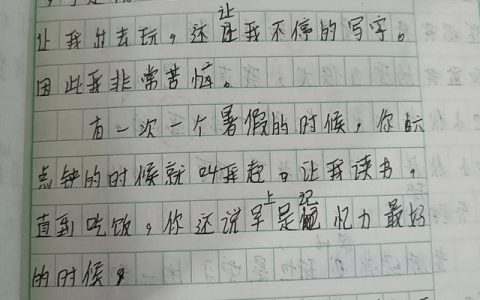 让我出去玩，还让我不停的写字。
因此我非常苦恼。
有一次一个暑假的时候，你六
点钟的时候就叫我起。让我读书，
直到吃饭，你还说早上是记忆力最好
的时候。